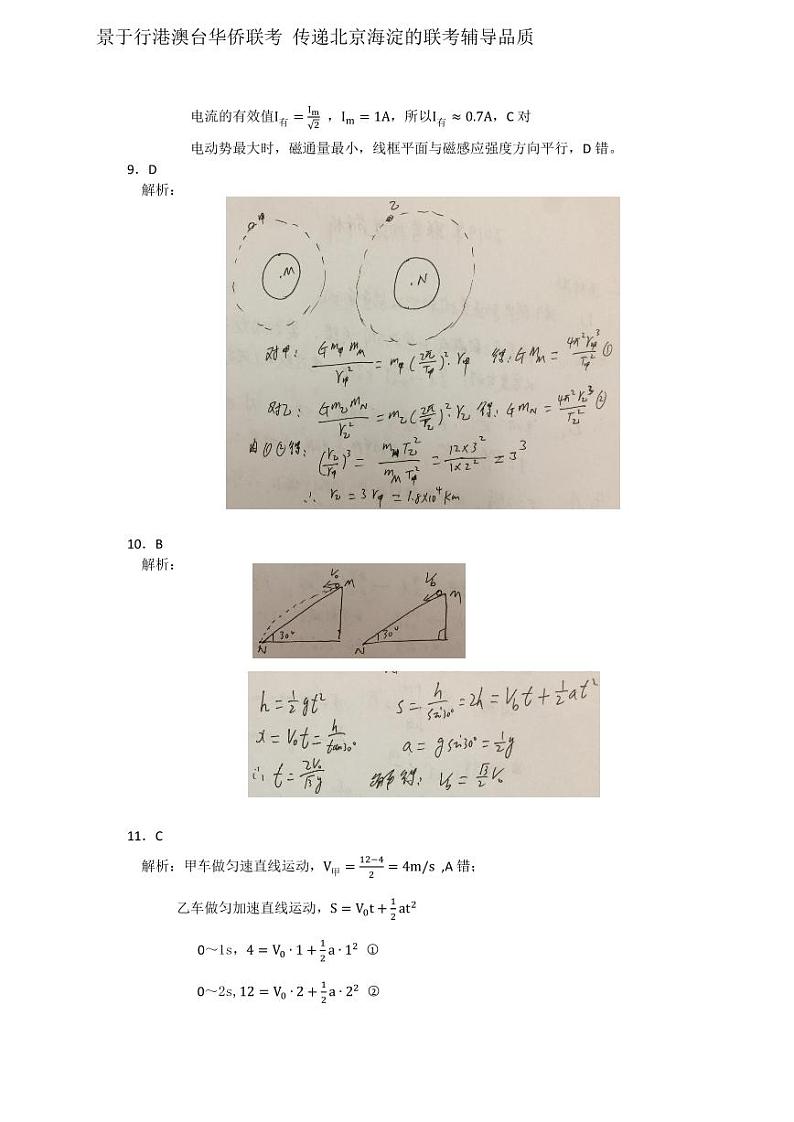 景于行港澳台华侨联考 传递北京海淀的联考辅导品质
电流的有效值I有 = Im/√2 ，Im = 1A，所以I有 ≈ 0.7A，C 对
电动势最大时，磁通量最小，线框平面与磁感应强度方向平行，D 错。
9．D
解析：
甲 乙
M N
对甲： G m甲 mM / r甲² = m甲 (2π/T甲)² · r甲 得：G MM = 4π² r甲³ / T甲² ①
对乙： G m乙 mN / r乙² = m乙 (2π/T乙)² · r乙 得：G mN = 4π² r乙³ / T乙² ②
由①②得： (r乙/r甲)³ = mN T乙² / mM T甲² = 12×3² / 1×2² = 3³
∴ r乙 = 3 r甲 = 1.8×10⁴ km
10．B
解析：
V₀ M V₀ M
N 30° N 30°
h = ½gt² s = h/sin30° = 2h = V₀t + ½at²
x = V₀t = h/tan30° a = g sin30° = ½g
∴ t = 2V₀/√3g 解得： V₀ = √3/2 V₀
11．C
解析：甲车做匀速直线运动，V甲 = 12−4/2 = 4m/s ,A 错；
乙车做匀加速直线运动，S = V₀t + ½at²
0～1s，4 = V₀ · 1 + ½a · 1² ①
0～2s, 12 = V₀ · 2 + ½a · 2² ②